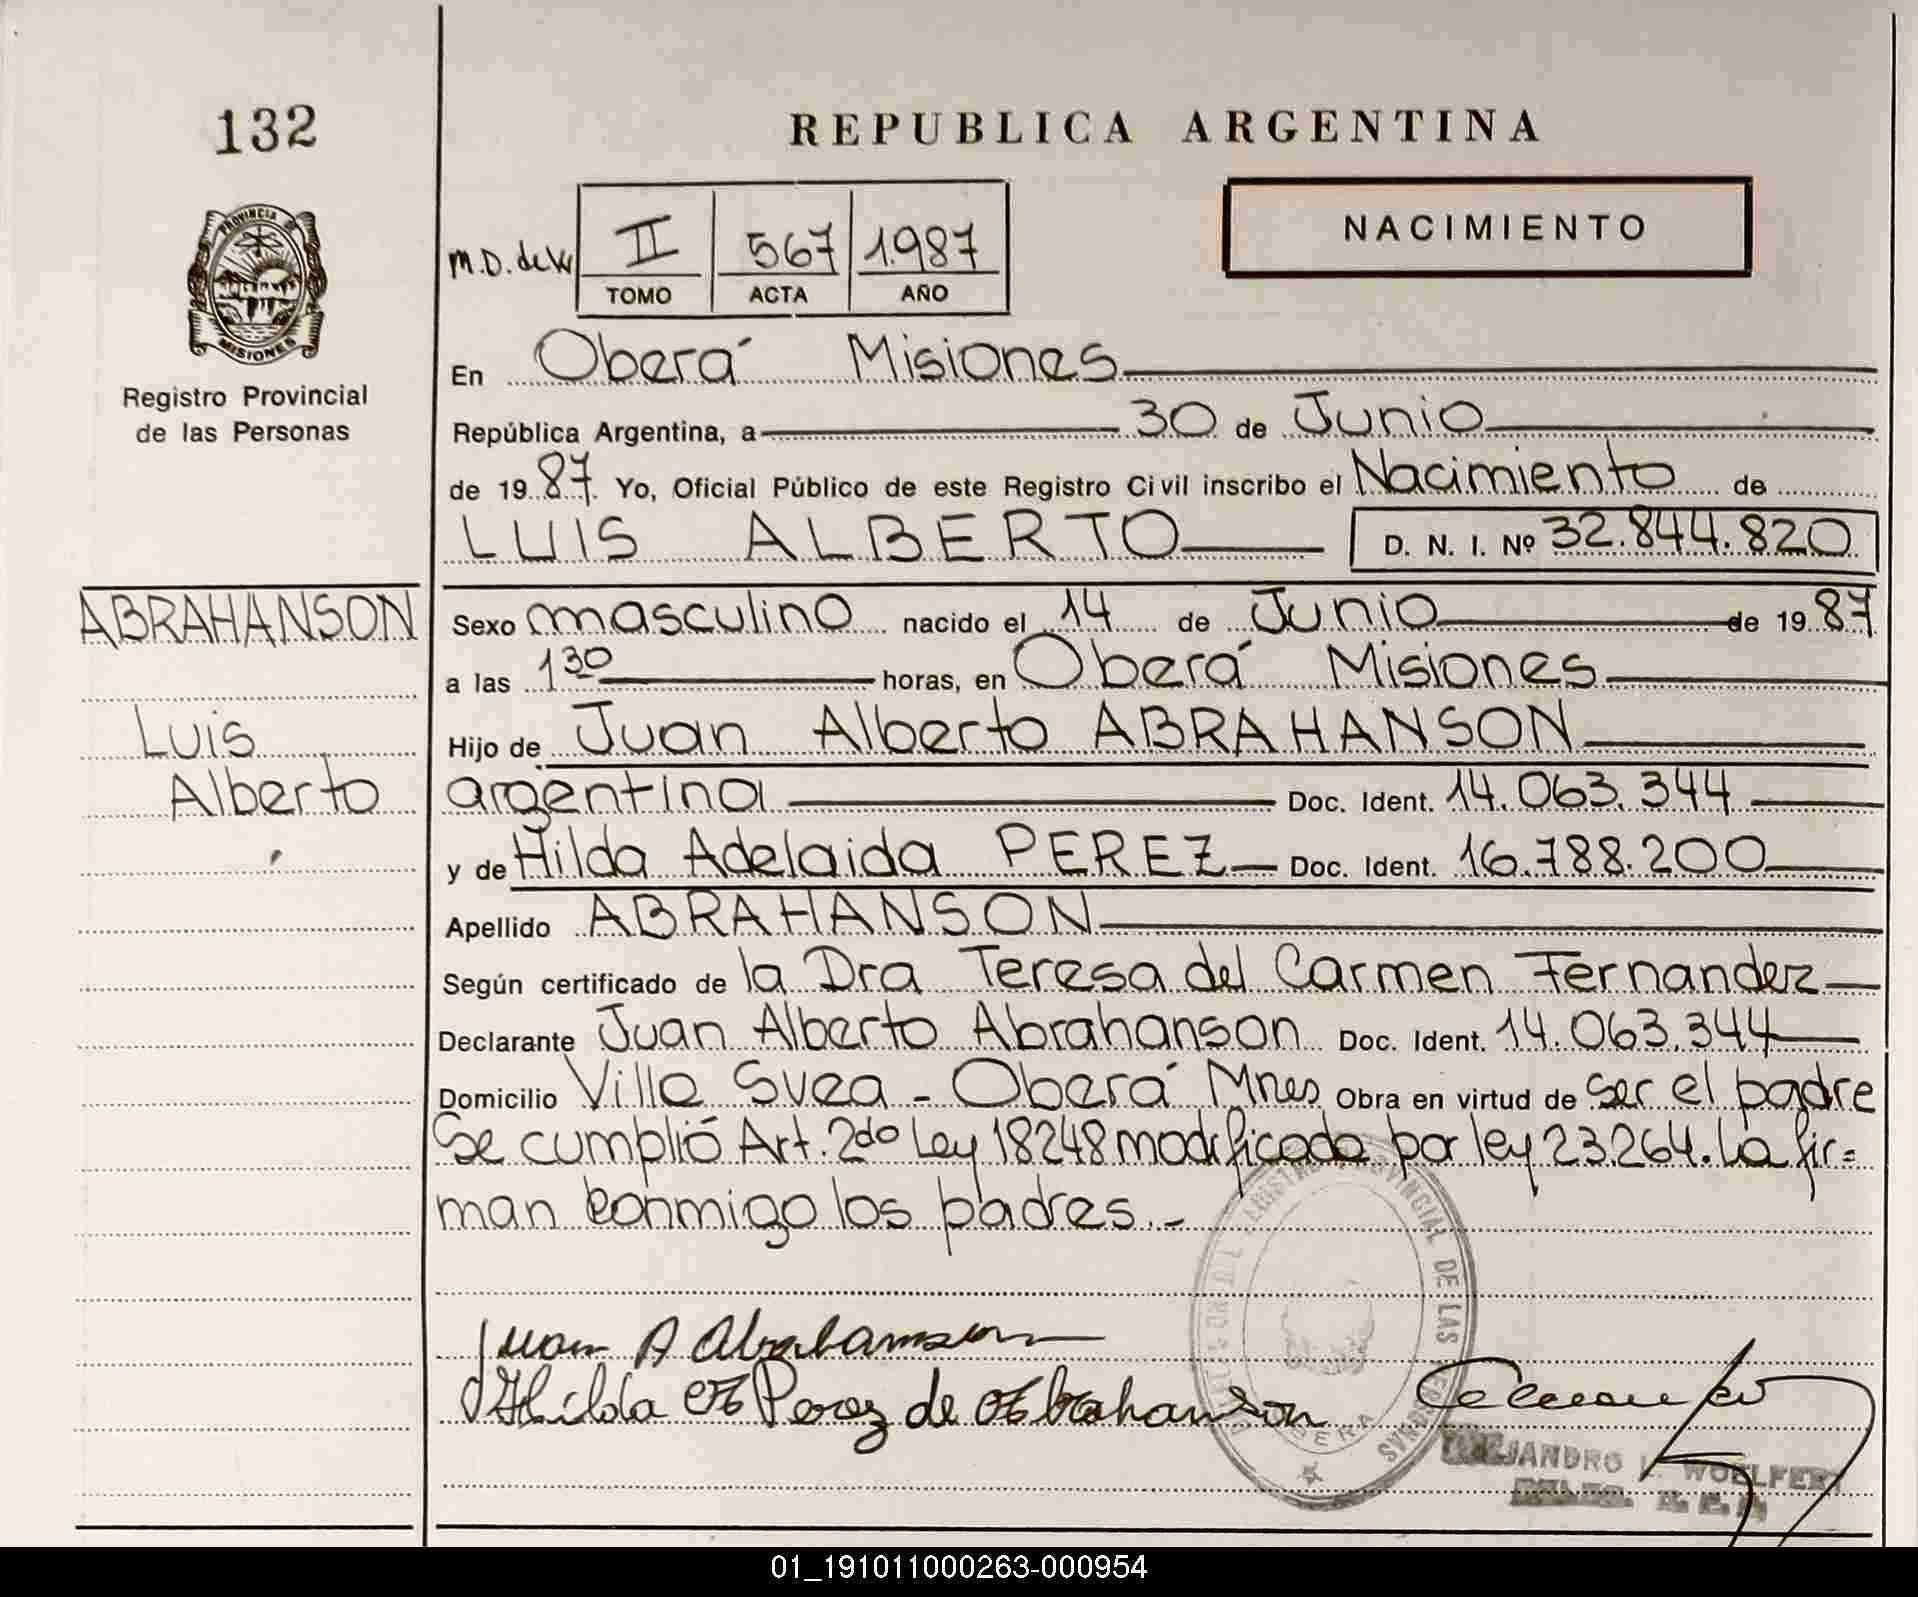 132
REPUBLICA ARGENTINA
PROVINCIA DE
MISIONES
Registro Provincial
de las Personas
M.D. de
II 567 1987
TOMO ACTA AÑO
NACIMIENTO
En Oberá Misiones
República Argentina, a 30 de Junio
de 1987. Yo, Oficial Público de este Registro Civil inscribo el Nacimiento de
LUIS ALBERTO D. N. I. Nº 32.844.820
ABRAHANSON
Luis
Alberto
Sexo masculino nacido el 14 de Junio de 1987
a las 1 30 horas, en Oberá Misiones
Hijo de Juan Alberto ABRAHANSON
argentina Doc. Ident. 14.063.344
y de Hilda Adelaida PEREZ Doc. Ident. 16.788.200
Apellido ABRAHANSON
Según certificado de la Dra Teresa del Carmen Fernandez
Declarante Juan Alberto Abrahanson Doc. Ident. 14.063.344
Domicilio Villa Svea - Oberá Mnes Obra en virtud de ser el padre
Se cumplió Art. 2do Ley 18248 modificada por ley 23.264. La fir=
man conmigo los padres.-
Juan A Abrahamson
Hilda A Perez de Abrahanson
REGISTRO PROVINCIAL DE LAS PERSONAS
OBERA
ALEJANDRO L. WOELFERT
01_191011000263-000954